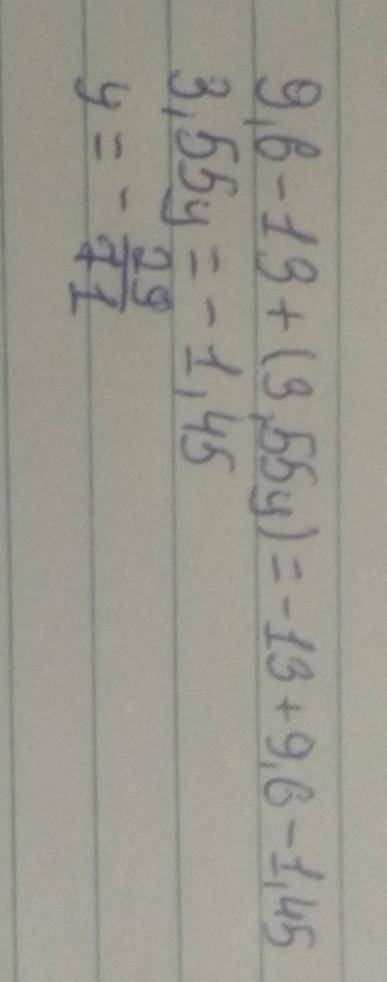 9,6-13+(3,55y)=-13+9,6-1,45
3,55y=-1,45
y=-29/71